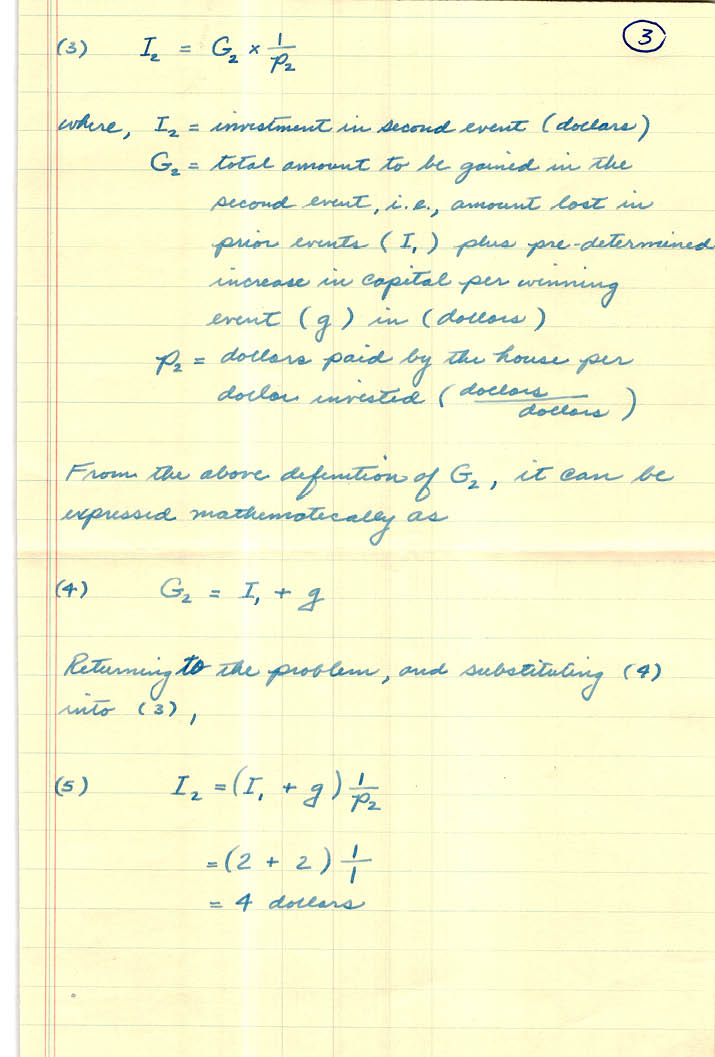 3
(3) I₂ = G₂ × 1/p₂
where, I₂ = investment in second event (dollars)
G₂ = total amount to be gained in the
second event, i.e., amount lost in
prior events (I₁) plus pre-determined
increase in capital per winning
event (g) in (dollars)
p₂ = dollars paid by the house per
dollar invested (dollars/dollars)
From the above definition of G₂, it can be
expressed mathematically as
(4) G₂ = I₁ + g
Returning to the problem, and substituting (4)
into (3),
(5) I₂ = (I₁ + g) 1/p₂
= (2 + 2) 1/1
= 4 dollars